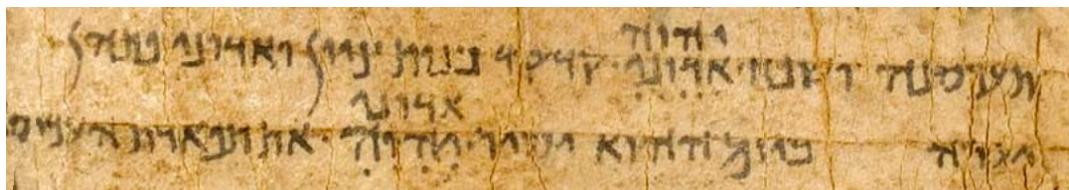 יהוה
תעכסנה ושפח אדוני קדקד בנות ציון ואדוני פתהן
אדוני
יערה ביום ההוא יסיר יהוה את תפארת העכסים